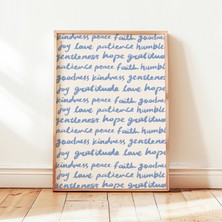 kindness peace faith humble
joy love patience humble
goodness hope gentleness
patience peace faith humble
goodness kindness gentleness
joy gratitude love hope
kindness peace faith goodness
joy love patience humble
gentleness hope gratitude
patience peace faith humble
goodness kindness gentleness
joy gratitude love hope
kindness peace faith goodness
joy love patience humble
gentleness hope gratitude